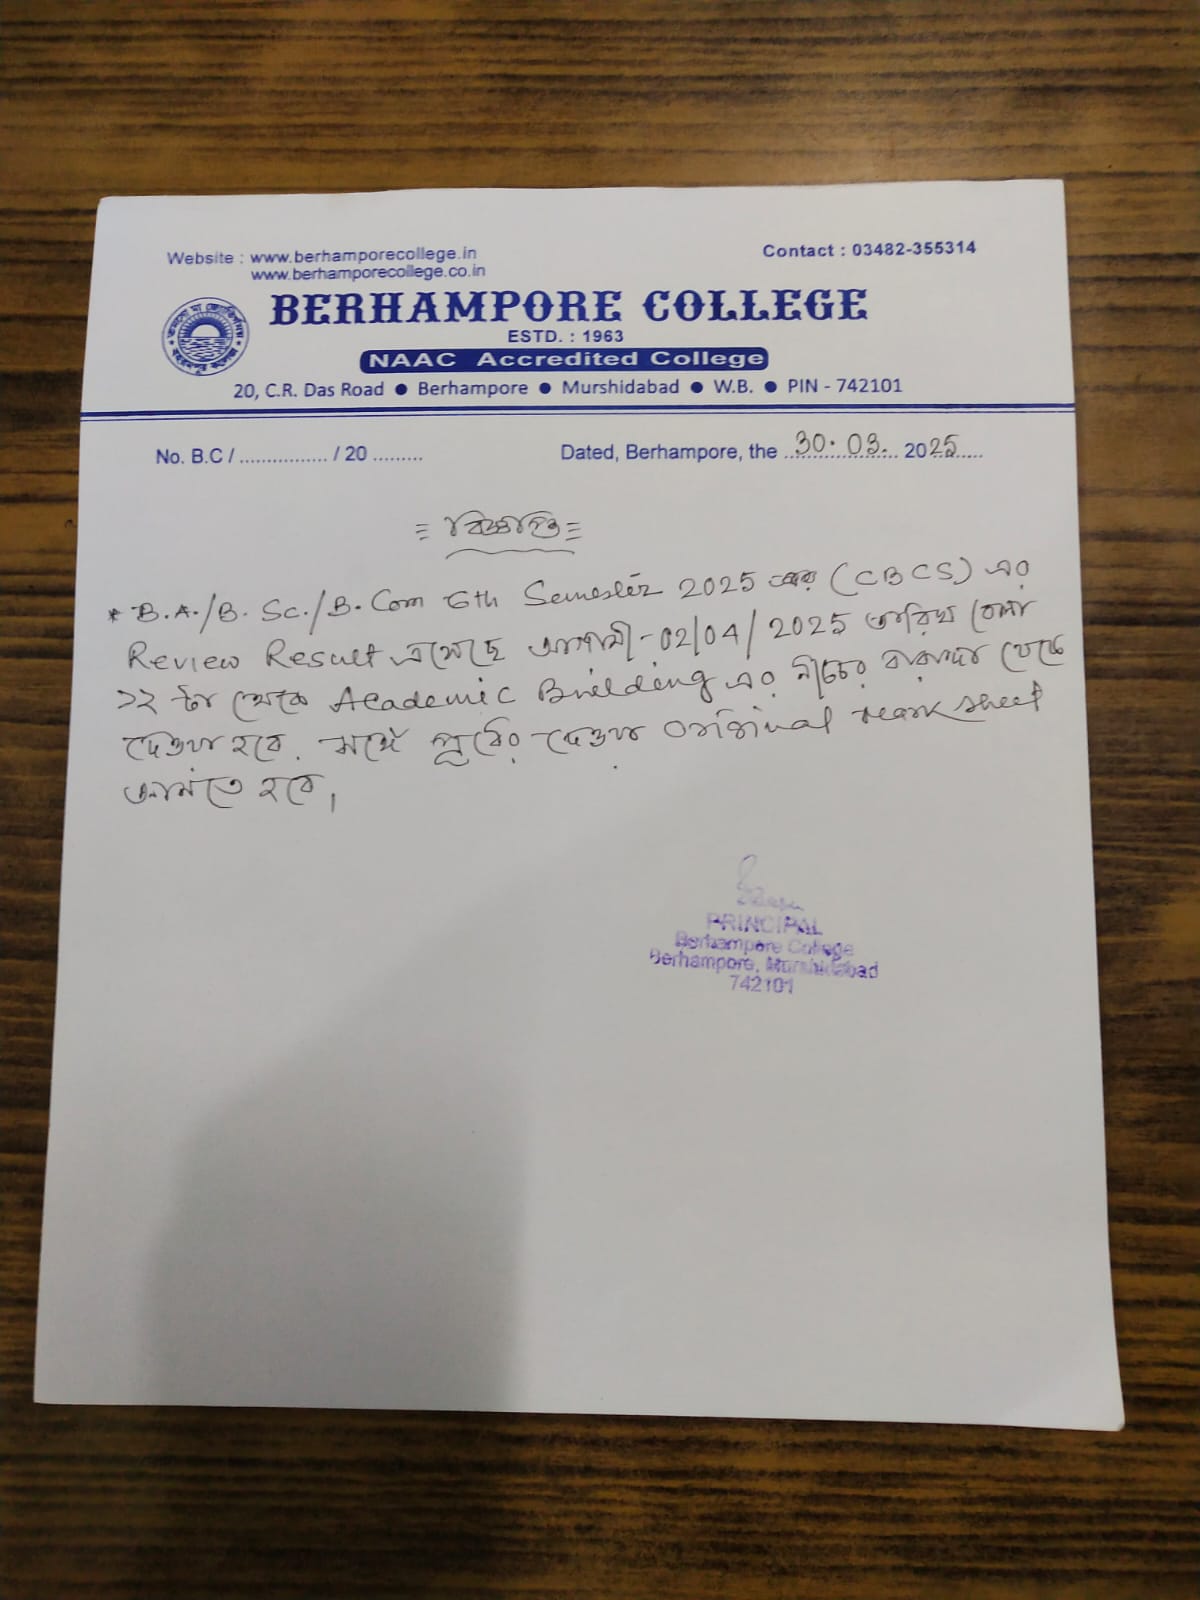 Website : www.berhamporecollege.in
www.berhamporecollege.co.in
Contact : 03482-355314
BERHAMPORE COLLEGE
ESTD. : 1963
NAAC Accredited College
20, C.R. Das Road ● Berhampore ● Murshidabad ● W.B. ● PIN - 742101
No. B.C / ................ / 20 .........
Dated, Berhampore, the 30.03. 2025
= বিজ্ঞপ্তি =
* B.A./B.Sc./B.Com 6th Semester 2025 (CBCS) এর
Review Result এসেছে আগামী - 02/04/2025 তারিখ বেলা
১২ টা থেকে Academic Building এর নীচের বারান্দা থেকে
দেওয়া হবে. সঙ্গে পূর্বের দেওয়া Original Mark sheet
আনতে হবে,
PRINCIPAL
Berhampore College
Berhampore, Murshidabad
742101